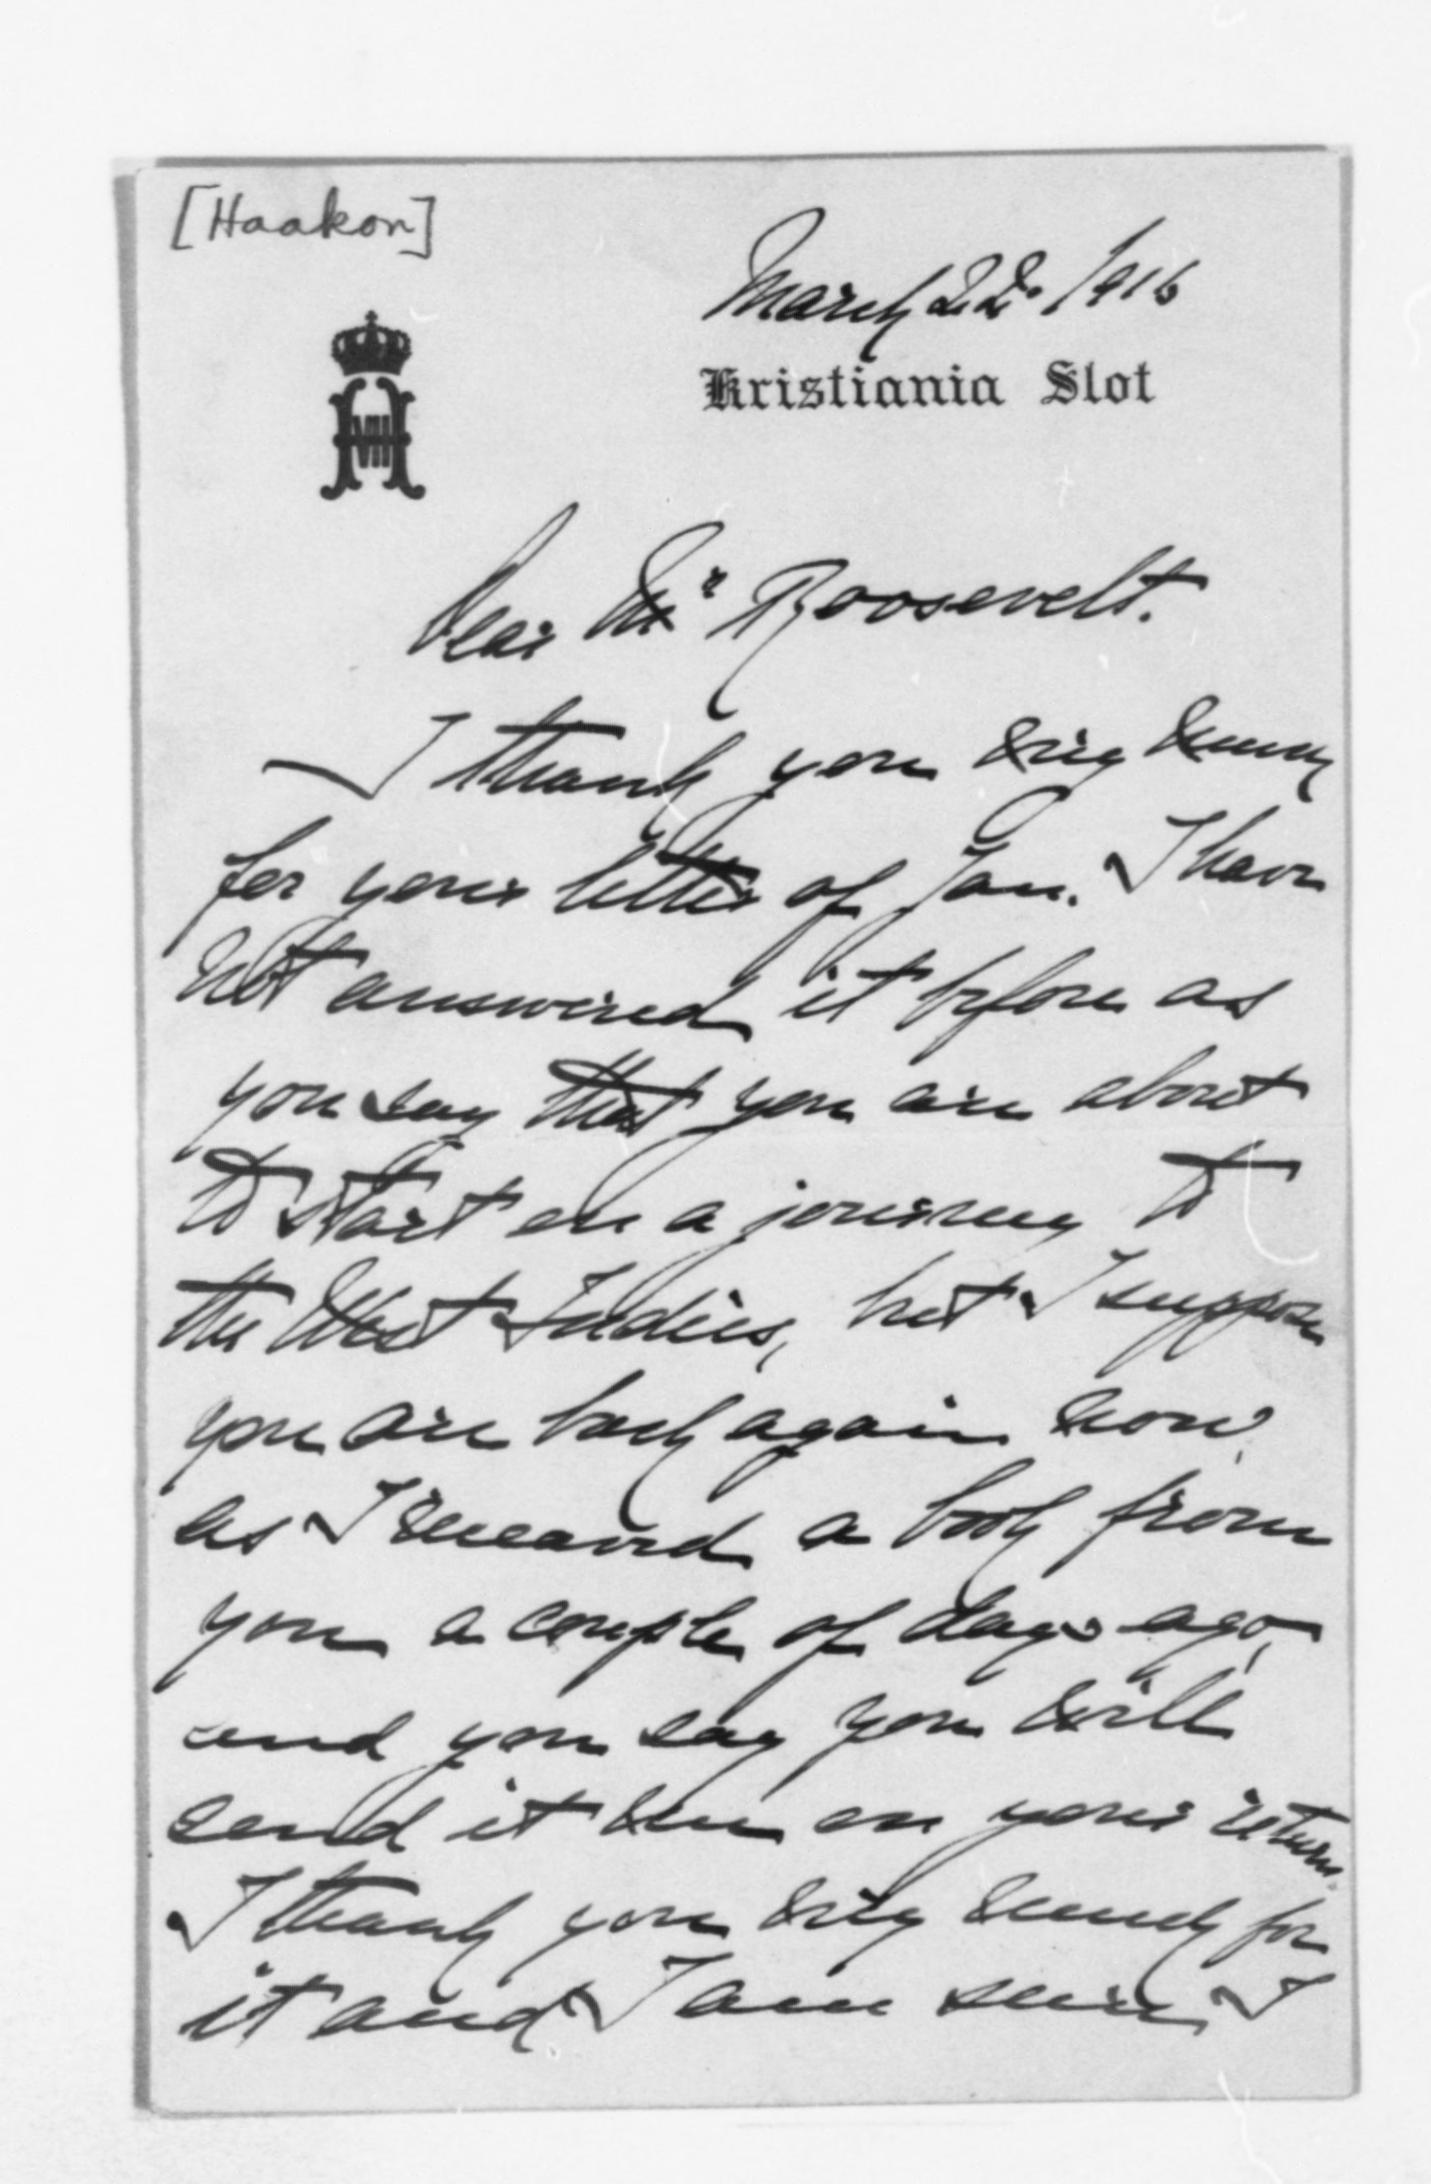 [Haakon]
March 22. 1916
H VII
Kristiania Slot
Dear Mr Roosevelt.
I thank you very much
for your letter of Jan. I have
not answered it before as
you say that you are about
to start on a journey to
the West Indies, but I suppose
you are back again now,
as I received a book from
you a couple of days ago,
and you say you will
send it me on your return.
I thank you very much for
it and I am sure I